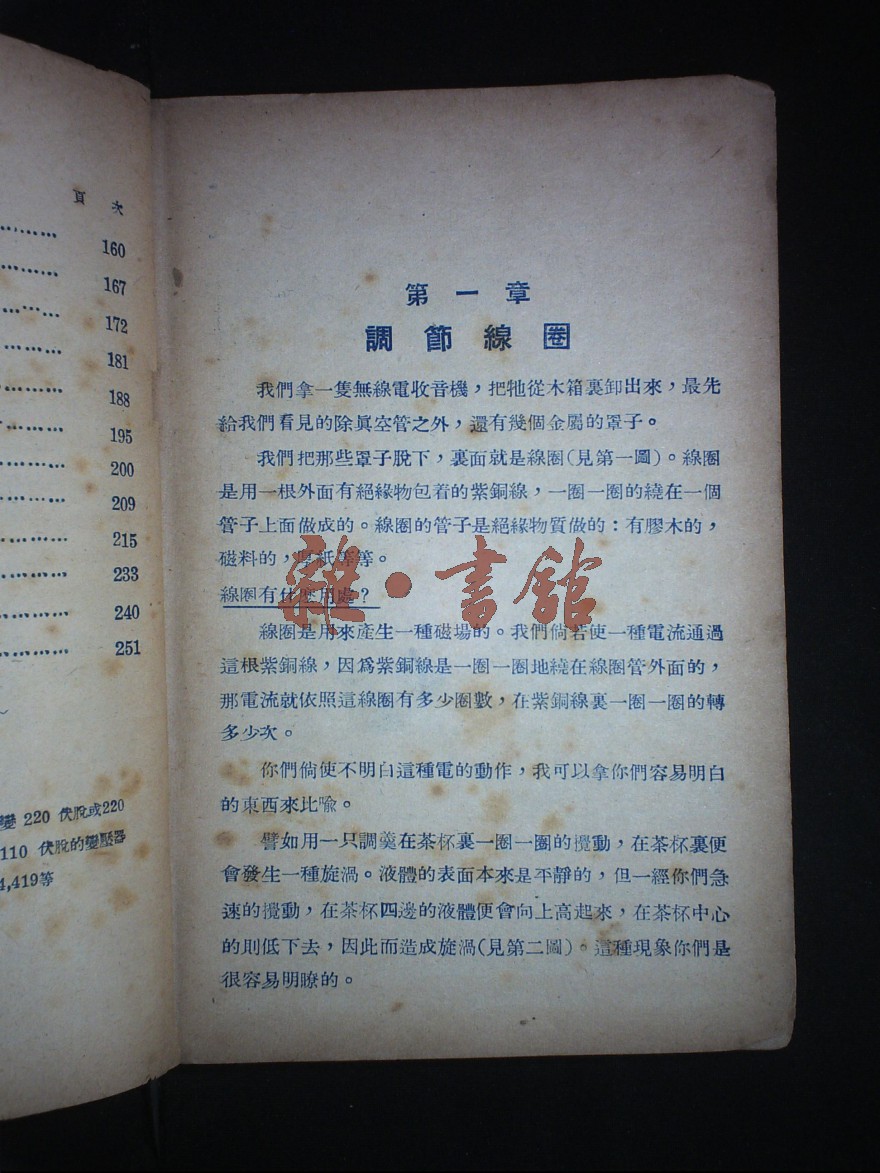 頁 次
160
167
172
181
188
195
200
209
215
233
240
251
變 220 伏脫或220
110 伏脫的變壓器
4,419等
第一章
調節線圈
我們拿一隻無線電收音機，把牠從木箱裏卸出來，最先
給我們看見的除眞空管之外，還有幾個金屬的罩子。
我們把那些罩子脫下，裏面就是線圈(見第一圖)。線圈
是用一根外面有絕緣物包着的紫銅線，一圈一圈的繞在一個
管子上面做成的。線圈的管子是絕緣物質做的：有膠木的，
磁料的，厚紙等等。
線圈有什麼用處？
雜·書館
線圈是用來產生一種磁場的。我們倘若使一種電流通過
這根紫銅線，因爲紫銅線是一圈一圈地繞在線圈管外面的，
那電流就依照這線圈有多少圈數，在紫銅線裏一圈一圈的轉
多少次。
你們倘使不明白這種電的動作，我可以拿你們容易明白
的東西來比喩。
譬如用一只調羹在茶杯裏一圈一圈的攪動，在茶杯裏便
會發生一種旋渦。液體的表面本來是平靜的，但一經你們急
速的攪動，在茶杯四邊的液體便會向上高起來，在茶杯中心
的則低下去，因此而造成旋渦(見第二圖)。這種現象你們是
很容易明瞭的。